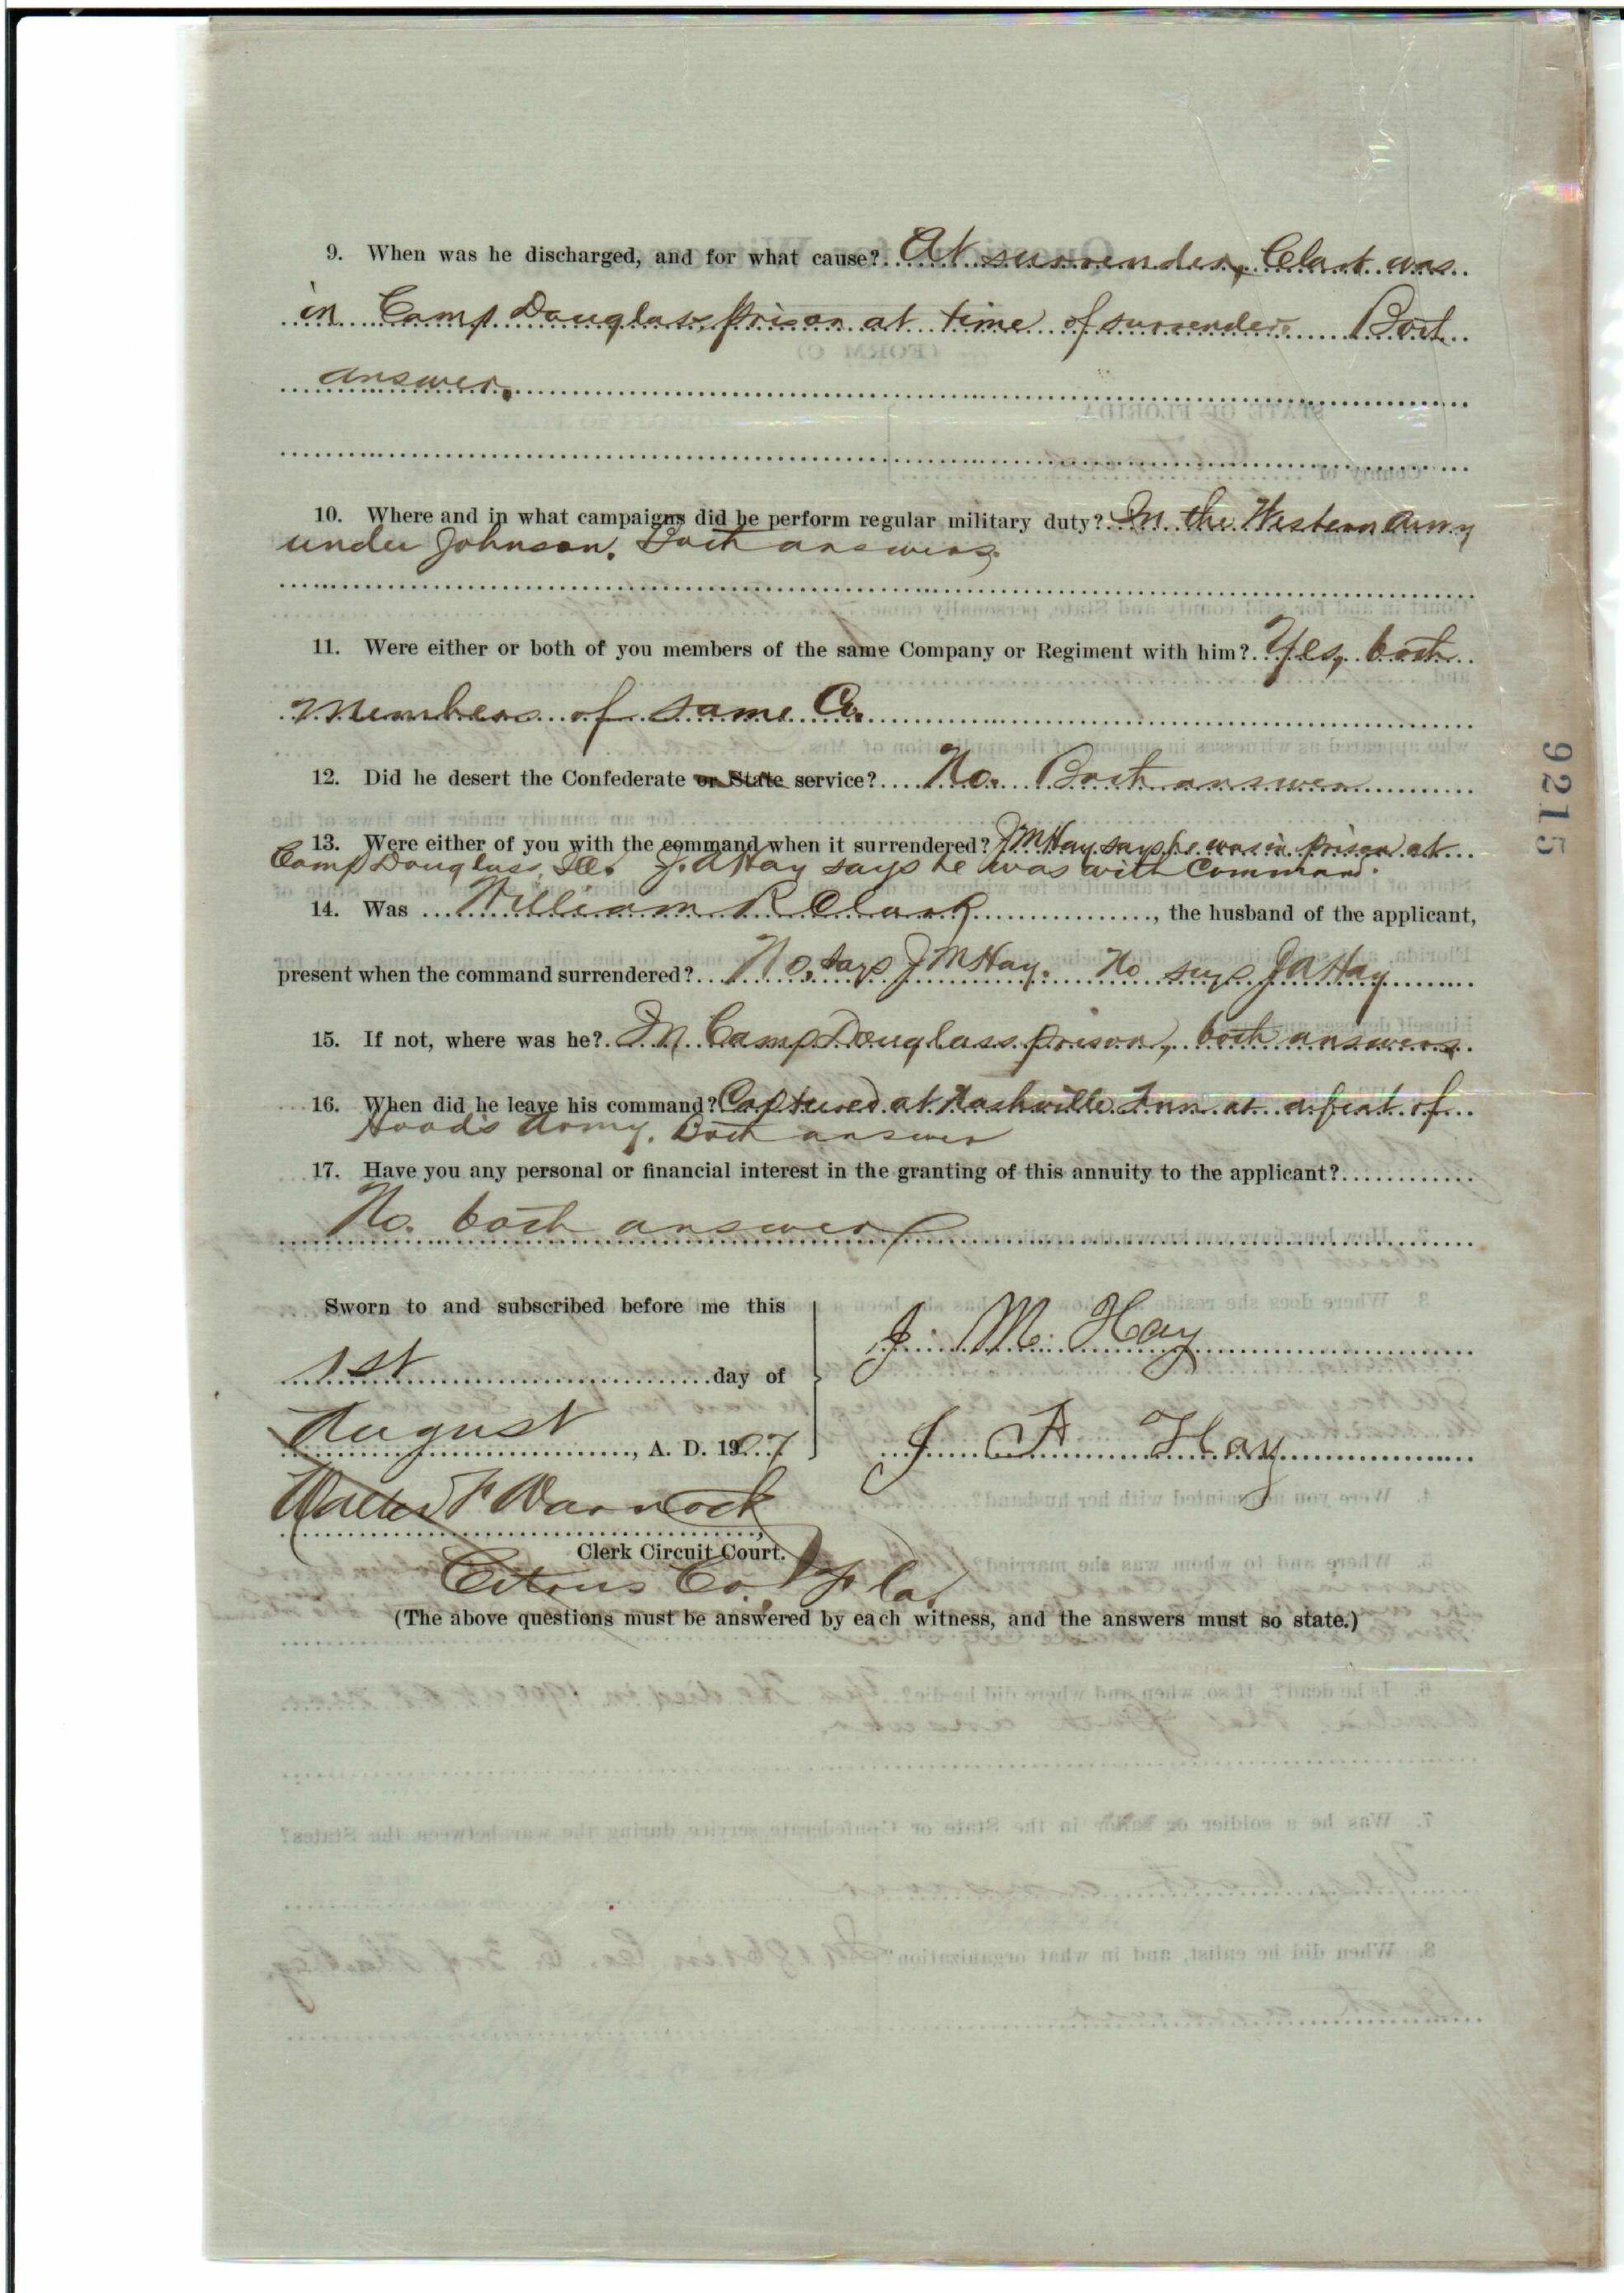 9. When was he discharged, and for what cause? At surrender, Clark was
in Camp Douglass prison at time of surrender. Both
answer.
10. Where and in what campaigns did he perform regular military duty? In the Western Army
under Johnson. Both answers.
11. Were either or both of you members of the same Company or Regiment with him? Yes, both
members of same Co.
12. Did he desert the Confederate or State service? No. Both answer
13. Were either of you with the command when it surrendered? J M Hay says he was in prison at
Camp Douglass, Ill. J. A Hay says he was with Command.
14. Was William R Clark, the husband of the applicant,
present when the command surrendered? No, says J M Hay. No says J A Hay
15. If not, where was he? In Camp Douglass prison, both answers.
16. When did he leave his command? Captured at Nashville Tenn at defeat of
Hoods Army. Both answer
17. Have you any personal or financial interest in the granting of this annuity to the applicant?
No. both answer
Sworn to and subscribed before me this
1st day of
August, A. D. 1907
J. M. Hay
J A Hay
Walter F Warnock
Clerk Circuit Court.
Citrus Co. Fla.
(The above questions must be answered by each witness, and the answers must so state.)
9215